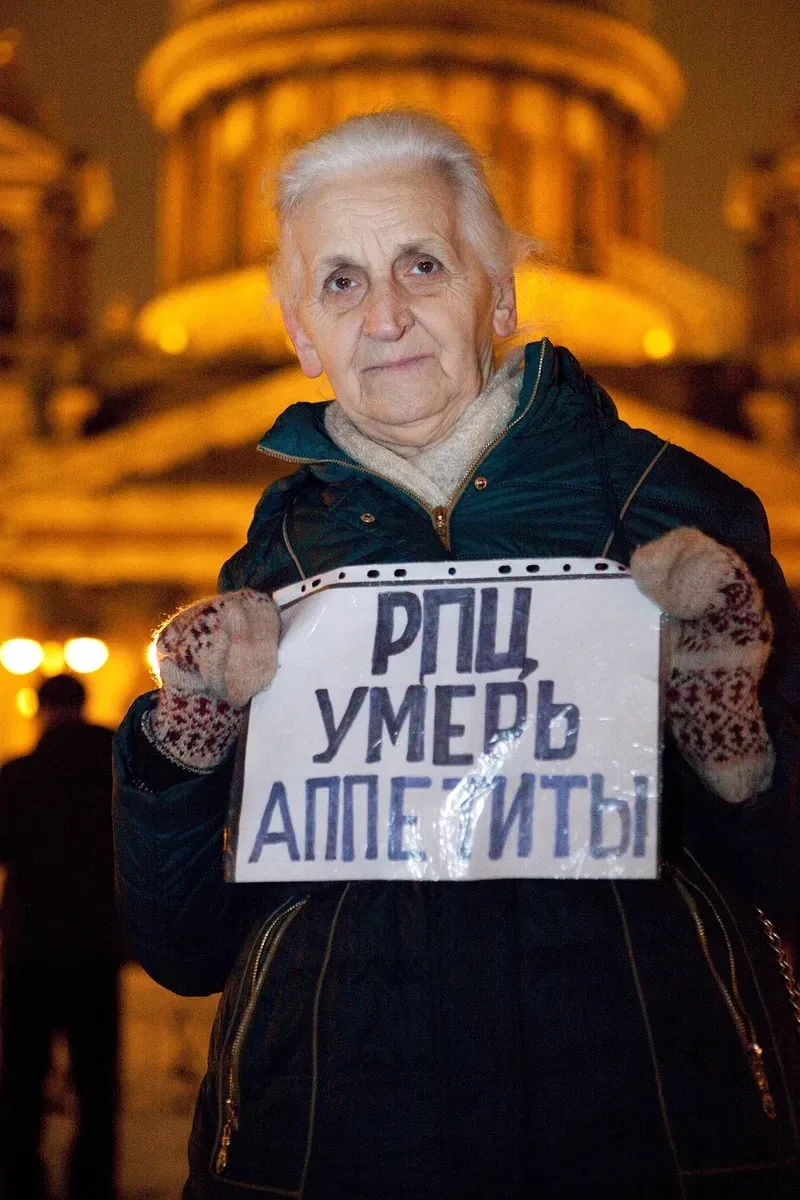 РПЦ
УМЕРЬ
АППЕТИТЫ